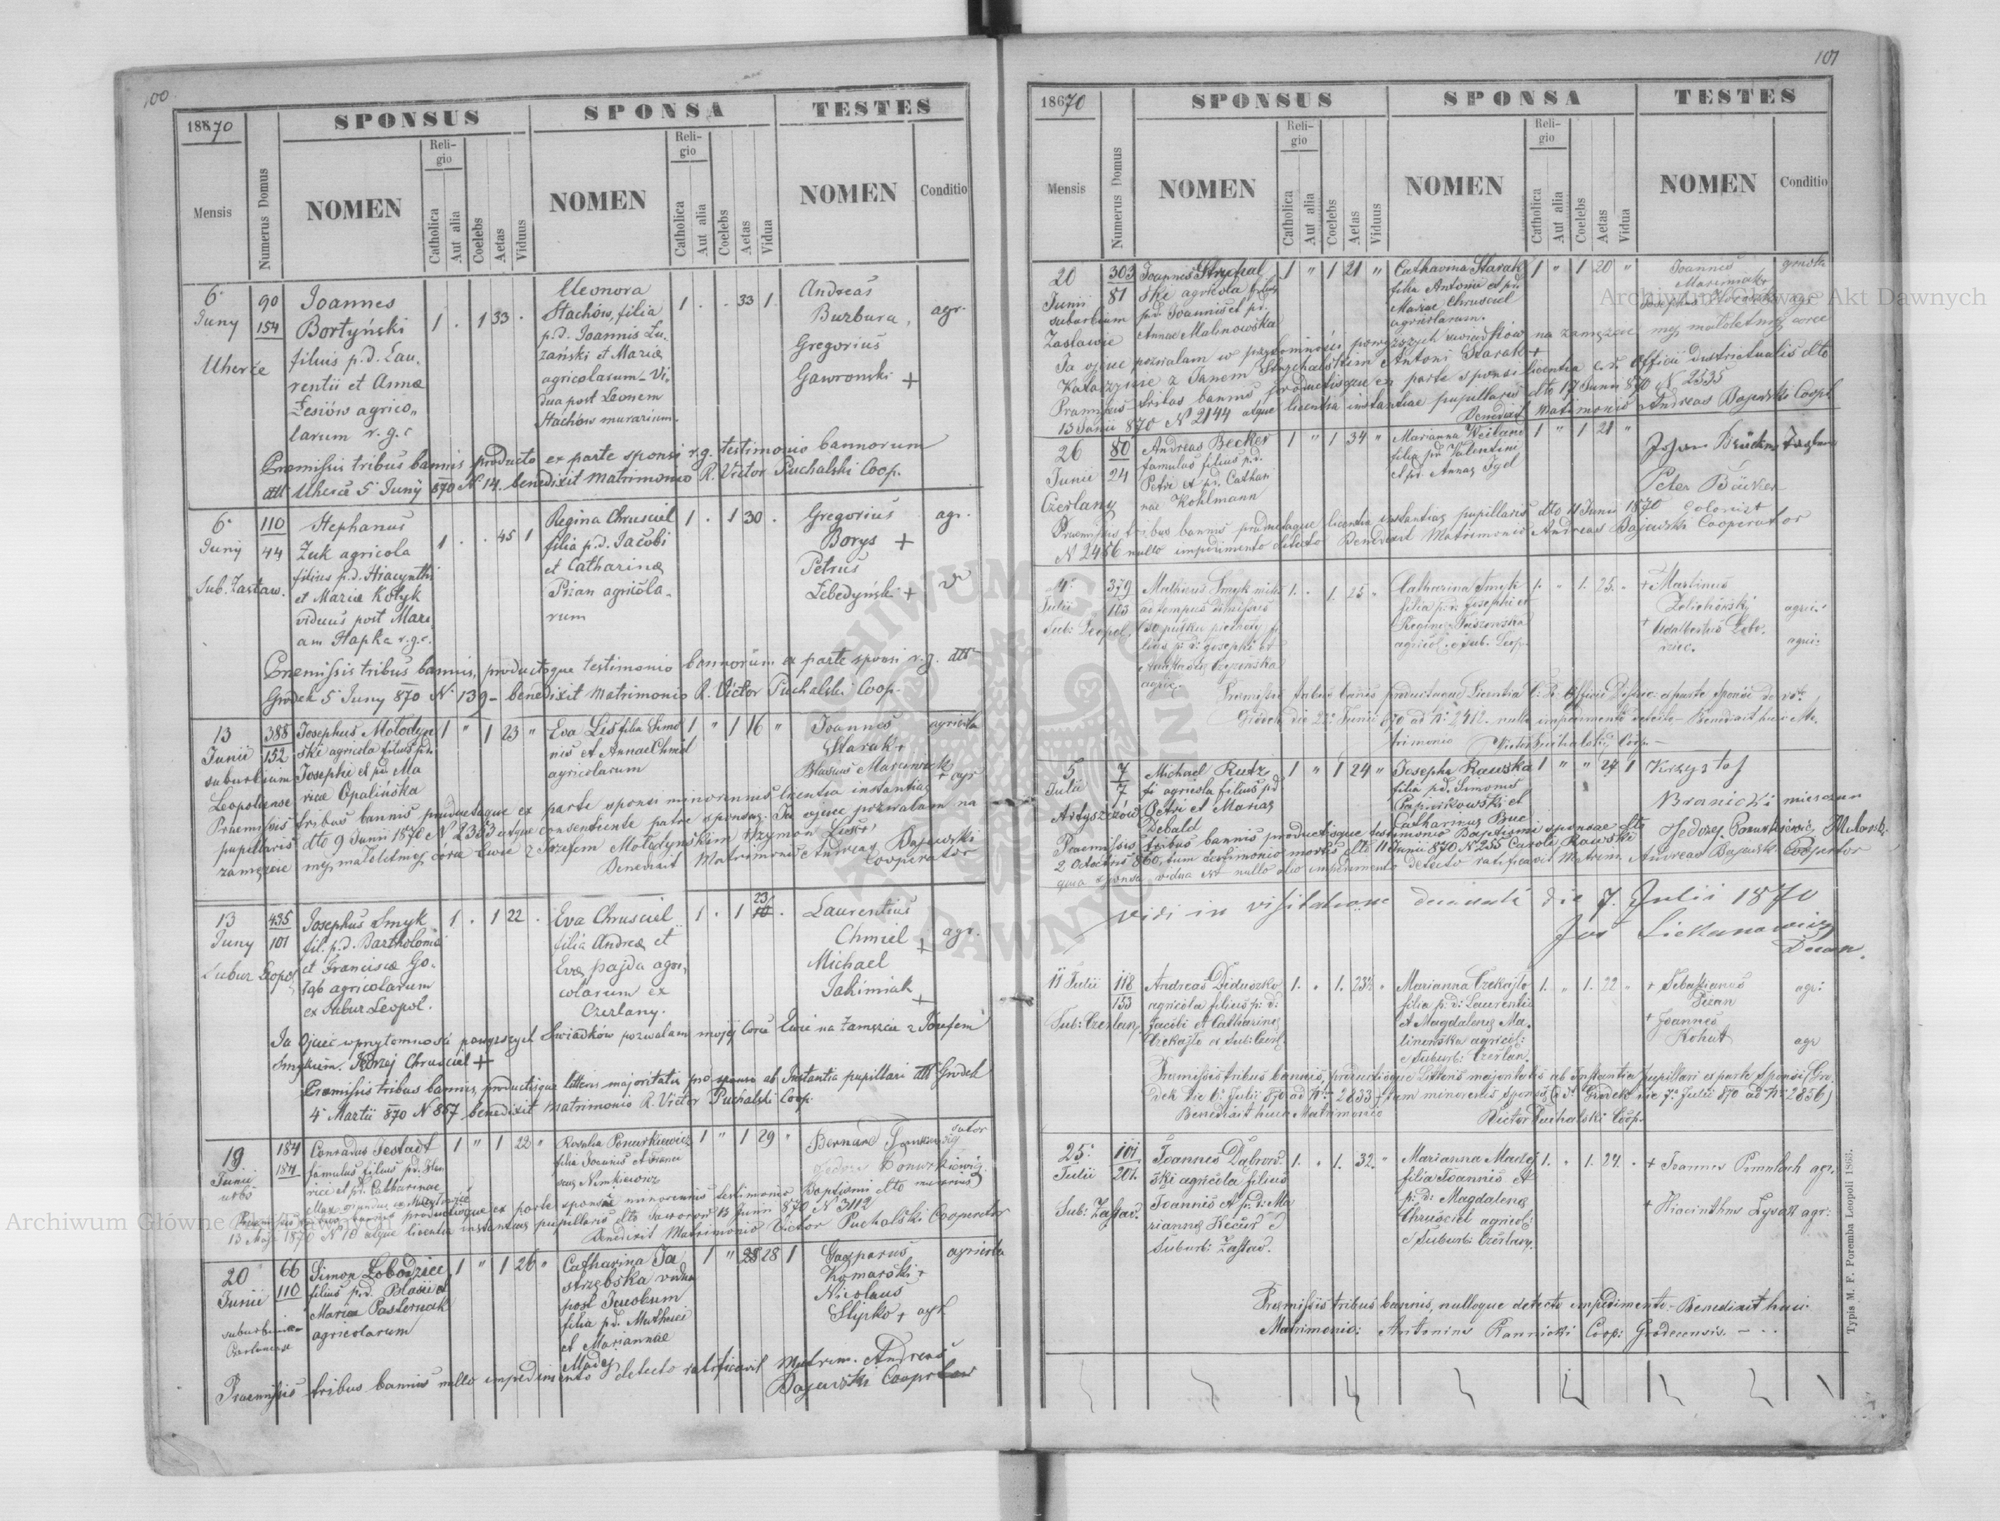 100
1870
Mensis
Numerus Domus
SPONSUS
NOMEN
Religio
Catholica
Aut alia
Coelebs
Aetas
Viduus
SPONSA
NOMEN
Religio
Catholica
Aut alia
Coelebs
Aetas
Vidua
TESTES
NOMEN
Conditio
6
Juny
Uherce
90
154
Joannes
Bortyński
filius p.d. Lau-
rentii et Annæ
Zesiów agrico„
larum r.g.c
1 . 1 33 .
Eleonora
Stachów, filia
p.d. Joannis Lu-
zański et Mariæ
agricolarum - Vi-
dua post Leonem
Stachów murarium.
1 . . 33 1
Andreas
Burbura,
Gregorius
Gawronski +
agr.
Præmissis tribus bannis, producto ex parte sponsi r.g. testimonio bannorum
dtt Uherce 5 Juny 870 N 14. benedixit matrimonio R. Victor Puchalski Coop.
6
Juny
Sub. Zastaw.
110
44
Stephanus
Żuk agricola
filius p.d. Hiacynthi
et Mariæ Kotyk
viduus post Mari
am Hapka r.g.c.
1 . . 45 1
Regina Chrusciel
filia p.d. Jacobi
et Catharinæ
Pizan agricola-
rum
1 . 1 30 .
Gregorius
Borys +
Petrus
Lebedyński +
agr.
Præmissis tribus bannis, productoque testimonio bannorum ex parte sponsi r.g. dtt
Grodek 5 Juny 870 N 139 - benedixit matrimonio R. Victor Puchalski Coop.
13
Junii
suburbium
Leopoliense
388
152
Josephus Mołodyń
ski agricola filius p.d.
Josephi et p.d. Ma
riæ Opalińska
1 " 1 23 "
Eva Lis filia Simo
nis et Annae Chmiel
agricolarum
1 " 1 16 "
Joannes
Starak +
Blasius Marciniak
+ agr
agricola
Praemissis tribus bannis productaque ex parte sponsi minorennis licentia instantiæ
pupillaris dto 9 Junii 1870 N 2383 atque consentiente patre sponsæ. Ja ojciec pozwalam na
zamęzcie mej małoletniej córce Ewie z Józefem Mołodyńskim Szymon Lis +
Benedixit Matrimonio Andreas Bajewski
Cooperator
13
Juny
Subur Leopol
435
101
Josephus Smyk
fil. p.d. Bartholomæi
et Franciscæ Go-
łąb agricolarum
ex Subur Leopol.
1 . 1 22 .
Eva Chrusciel
filia Andreæ et
Evæ Pajda agri,
colarum ex
Czerlany.
1 . 1 23 .
Laurentius
Chmiel +
Michael
Jakimiak +
agr.
Ja Ojciec wprzytomności powyzszych Swiadków pozwalam mojéj Córce Ewie na Zamęscie z Józefem
Smykiem. Jędrzej Chrusciel +
Præmissis tribus bannis, productisque litteris majoritatis pro sponso ab Instantia pupillari dtt Grodek
4 Martii 870 N 867. benedixit matrimonio R. Victor Puchalski Coop.
19
Junii
urbs
184
184
Conradus Jestadt
famulus filius p.d. Hen
rici et p.d. Catharinae
1 " 1 22 "
Rosalia Ponurkiewicz
filia Joannis et Franci
scæ Nimkiewicz
1 " 1 29 "
sutor
Jędrzej Ponurkiewicz
Praemissis tribus bannis productisque ex parte sponsi minorennis testimonio Baptismi dto
13 Maji 1870 N 10 atque licentia instantiæ pupillaris dto Jaworow 13 Junii 870 N 3112
Benedixit Matrimonio Victor Puchalski Cooperator
20
Junii
suburbium
66
110
Simon Łobodziec
filius p.d. Blasii et
Mariæ Pasternak
agricolarum
1 " 1 26 "
Catharina Ja
strzębska vidua
post Jacobum
filia p.d. Mathæi
et Mariannae
Madej
1 " 28 1
Gasparus
Komarski +
Nicolaus
Slipko + agr
agricola
Praemissis tribus bannis nullo impedimento detecto ratificavit Matrim. Andreas
Bajewski Cooperator
101
1870
Mensis
Numerus Domus
SPONSUS
NOMEN
Religio
Catholica
Aut alia
Coelebs
Aetas
Viduus
SPONSA
NOMEN
Religio
Catholica
Aut alia
Coelebs
Aetas
Vidua
TESTES
NOMEN
Conditio
20
Junii
suburbium
Zastawie
303
81
Joannes Strychal
ski agricola filius
p.d. Joannis et p.d.
Annae Malinowska
1 " 1 21 "
Catharina Starak
filia Antonii et p.d.
Mariae Chrusciel
agricolarum.
1 " 1 20 "
Joannes
Marciniak
Ja ojciec pozwalam w przytomności powyzszych swiadków na zamęzcie mej małoletniej córce
Katarzynie z Janem Strychalskim Antoni Starak +
Præmissis tribus bannis productisque ex parte sponsi licentia c.r. Officii districtualis dto
13 Junii 870 N 2144 atque licentia instantiae pupillaris dto 17 Junii 870 N 2535
Benedixit Matrimonio Andreas Bajewski Coopt
26
Junii
Czerlany
80
24
Andreas Becker
famulus filius p.d.
Petri et p.d. Cathari
nae Kohlmann
1 " 1 34 "
Marianna Weiland
filia p.d. Valentini
et p.d. Annæ Igel
1 " 1 21 "
Peter Bäcker
Colonist
Præmissis tribus bannis productaque licentia instantiæ pupillaris dto 11 Junii 1870
N 2486 nullo impedimento detecto Benedixit Matrimonio Andreas Bajewski Cooperator
4
Julii
Sub: Leopol.
379
103
Mathæus Smyk miles
ad tempus dimissus
filius p.d. Josephi et
agric.
1. . 1. 25 "
Catharina Smyk
filia p.d. Josephi et
Reginæ Kuszewska
agricol. e Sub. Leop.
1. . 1. 25. .
+ Martinus
Zelichowski
+ Adalbertus
agric:
agric:
Præmissis tribus bannis productaque Licentia C: R: Officii District: ex parte Sponsi de dto
Grodek die 22 Junii 870 ad N: 2412. nullo impedimento detecto - Benedixit huic Ma-
trimonio Victor Puchalski, Coop.-
5
Julii
Artyszczów
7
7
Michael Rutz
fi agricola filius p.d.
Petri et Mariæ
Debald
1 " 1 24 "
Josepha Rawska
filia p.d. Simonis
Paprikowski et
Catharinæ Buc
1 " " 27 1
Krzysztof
Bronicki mieszcan
Jedrzej Ponurkiewicz
Præmissis tribus bannis productisque testimonio Baptismi sponsae dto
2 Octobris 860, tum testimonio mortis dto 11 Junii 870 N 255 Caroli Rawski
quia sponsa vidua est nullo alio impedimento detecto ratificavit Matrim. Andreas Bajewski Cooperator
Vidi in visitatione decanali die 7. Julii 1870
Jos Siekanowicz
Decan.
11 Julii
Sub: Czerlan,
118
153
Andreas Diduszko
agricola filius p: d:
Jacobi et Catharinæ
Czekajło e Sub: Czerl.
1. . 1. 23½ .
Marianna Czekajło
filia p: d: Laurentii
et Magdalenæ Ma-
linowska agricol:
e Suburb: Czerlan.
1. " 1. 22 "
+ Sebastianus
Pizan
+ Joannes
Kohut
agr:
agr
Præmissis tribus bannis, productisque Litteris majoritatis ab Instantia pupillari ex parte sponsi (Gro-
dek die 6: Julii 870 ad N: 2833 - tam minorennis sponsæ (dd: Grodek die 7: Julii 870 ad N: 2856)
Benedixit huic Matrimonio Victor Puchalski Coop.
25
Julii
Sub: Zastaw.
101
201.
Joannes Dąbrow-
ski agricola filius
Joannis et p: d: Ma-
riannæ Kecur e
Suburb: Zastaw.
1. . 1. 32. .
Marianna Madej
filia Joannis et
p: d: Magdalenæ
Chrusciel agricol:
e Suburb: Czerlany.
1. . 1. 24. .
+ Joannes
+ Hiacinthus Lysak
agr.
agr:
Præmissis tribus bannis, nulloque detecto impedimento - Benedixit huic
Matrimonio: Antonius Rannicki Coop: Grodecensis. -
Typis M. F. Poremba Leopoli 1863.
Archiwum Główne Akt Dawnych
Archiwum Główne Akt Dawnych
ARCHIWUM GŁÓWNE AKT DAWNYCH